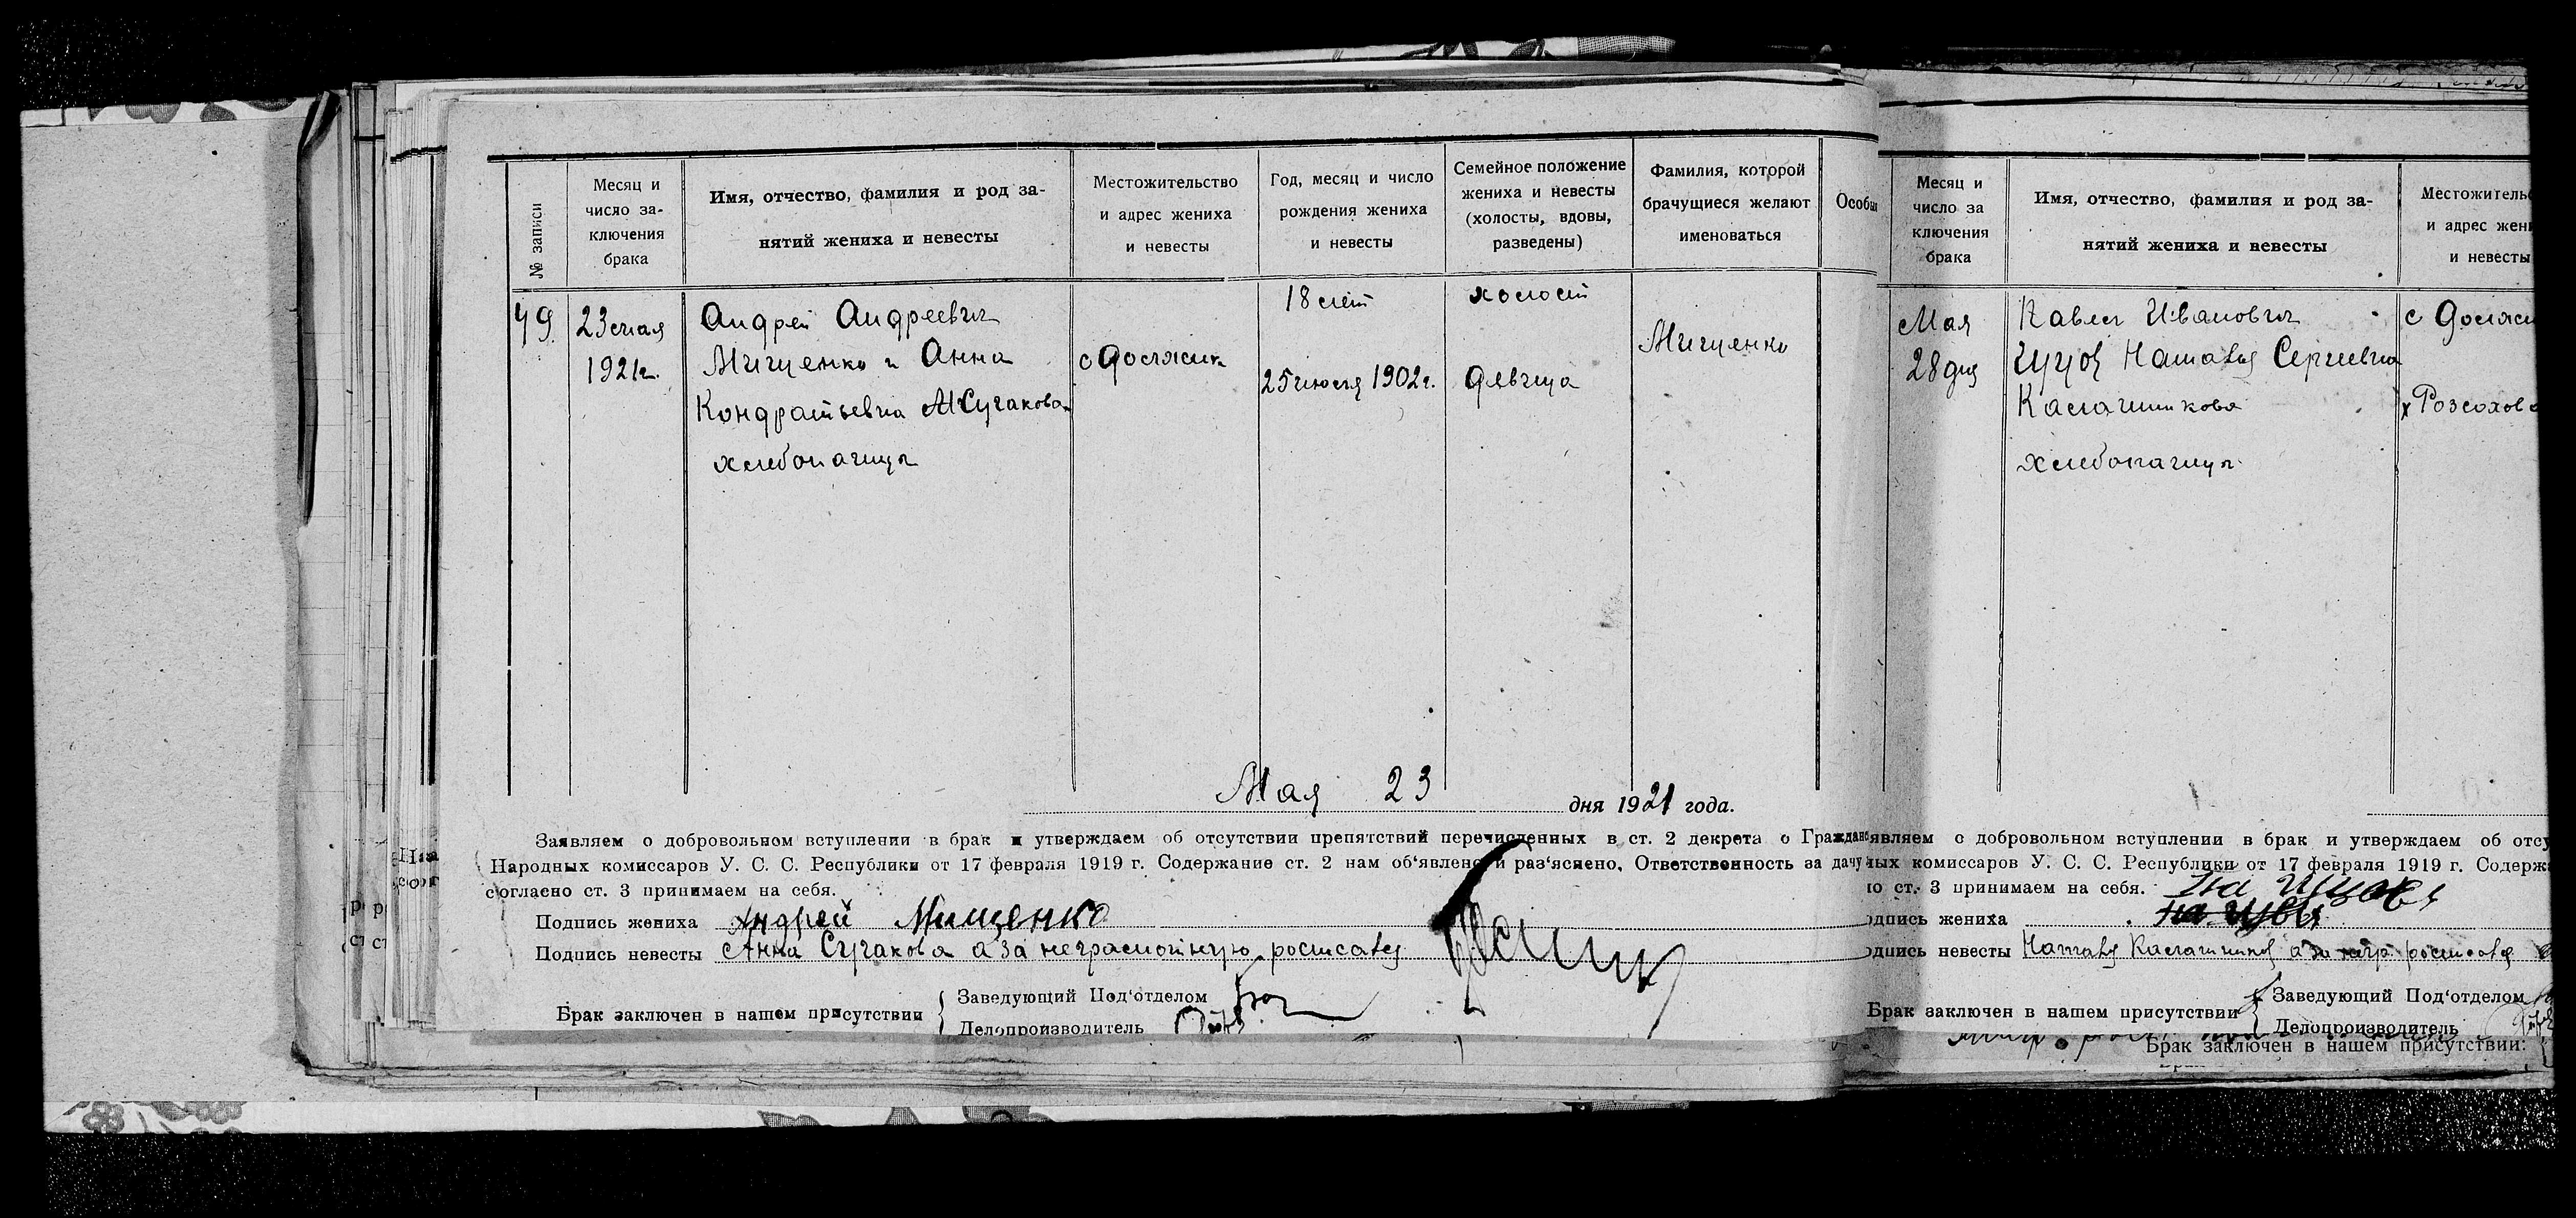 № записи
Месяц и
число за-
ключения
брака
Имя, отчество, фамилия и род за-
нятий жениха и невесты
Местожительство
и адрес жениха
и невесты
Год, месяц и число
рождения жениха
и невесты
Семейное положение
жениха и невесты
(холосты, вдовы,
разведены)
Фамилия, которой
брачущиеся желают
именоваться
Особы
49
23 мая
1921 г.
Андрей Андреевич
Мищенко и Анна
Кондратьевна Сучакова
хлебопашцы
с Должик
18 лет
25 июля 1902 г.
холост
девица
Мищенко
Мая 23 дня 1921 года.
Заявляем о добровольном вступлении в брак и утверждаем об отсутствии препятствий перечисленных в ст. 2 декрета о Гражданс
Народных комиссаров У. С. С. Республики от 17 февраля 1919 г. Содержание ст. 2 нам об‘явлено и раз‘яснено. Ответственность за дачу
согласно ст. 3 принимаем на себя.
Подпись жениха Андрей Мищенко
Подпись невесты Анна Сучакова а за неграмотную
Брак заключен в нашем присутствии
Заведующий Под‘отделом
Делопроизводитель
Месяц и
число за
ключения
брака
Имя, отчество, фамилия и род за-
нятий жениха и невесты
Местожительс
и адрес жени
и невесты
Мая
28 дня
Павел Иванович
Наталья Сергеевна
Калашникова
хлебопашцы
с Должи
х
являем о добровольном вступлении в брак и утверждаем об отсу
ных комиссаров У. С. С. Республики от 17 февраля 1919 г. Содерж
о ст. 3 принимаем на себя.
одпись жениха
одпись невесты
Брак заключен в нашем присутствии
Заведующий Под‘отделом
Делопроизводитель
Брак заключен в нашем присутствии: